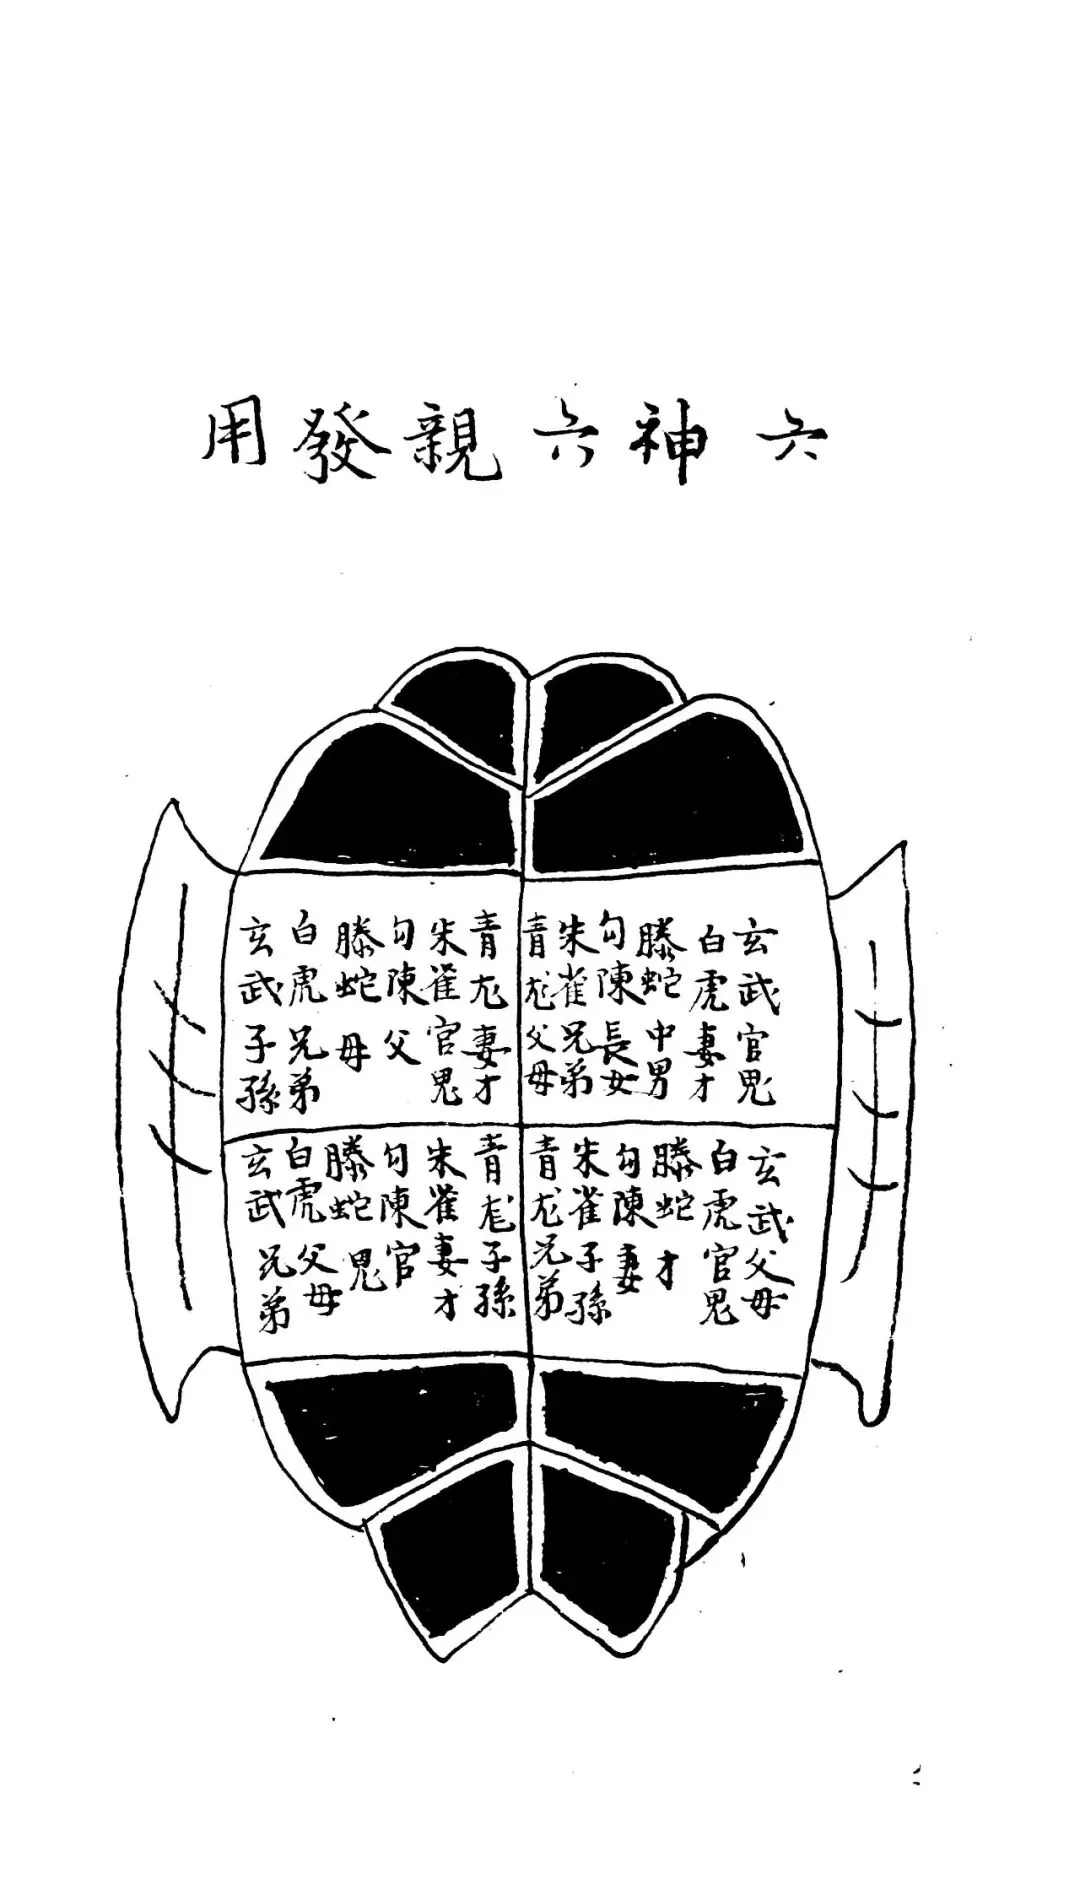 六神六親發用
玄武官鬼
白虎妻才
螣蛇中男
勾陳長女
朱雀兄弟
青龙父母
青龙妻才
朱雀官鬼
勾陳父
螣蛇母
白虎兄弟
玄武子孫
玄武父母
白虎官鬼
螣蛇才
勾陳妻
朱雀子孫
青龙兄弟
青龙子孫
朱雀妻才
勾陳官
螣蛇鬼
白虎父母
玄武兄弟